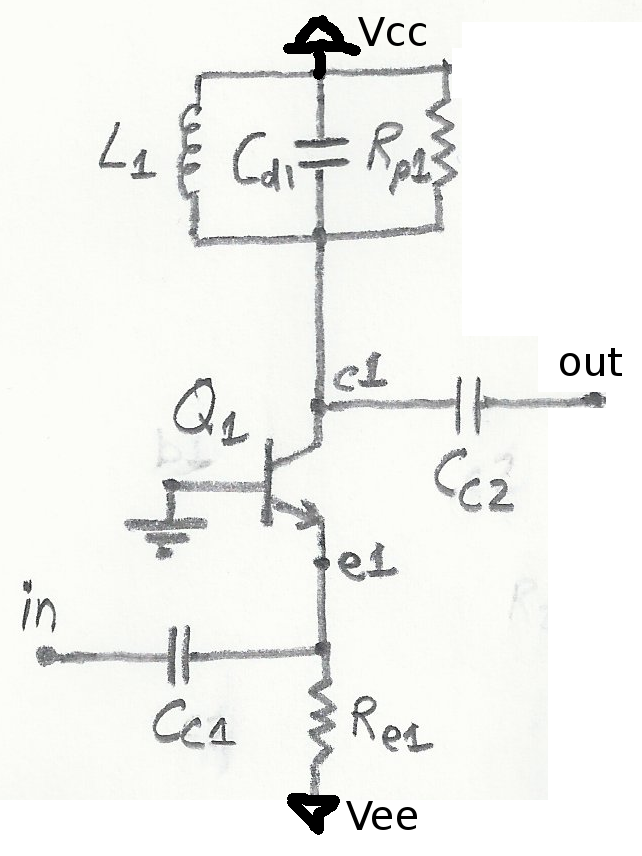 Vcc
L1
Cd1
Rp1
c1
out
Q1
CC2
e1
in
CC1
Re1
Vee